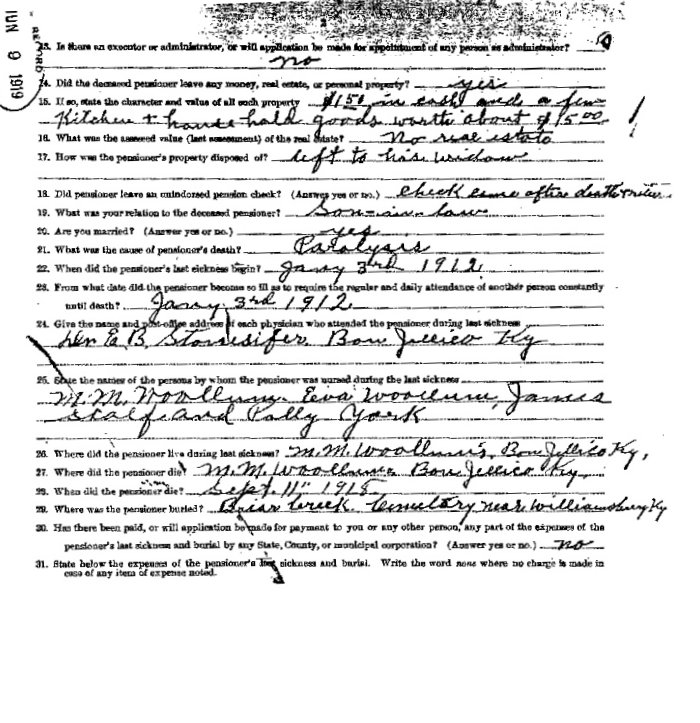 RECORD
JUN 9 1919
13. Is there an executor or administrator, or will application be made for appointment of any person as administrator?
no
14. Did the deceased pensioner leave any money, real estate, or personal property? yes
15. If so, state the character and value of all such property $150 in cash and a few
Kitchen + house hold goods worth about $15.00
16. What was the assessed value (last assessment) of the real estate? No real estate
17. How was the pensioner's property disposed of? left to his widow
18. Did pensioner leave an unindorsed pension check? (Answer yes or no.) Check came after death
19. What was your relation to the deceased pensioner? Son-in-law
20. Are you married? (Answer yes or no.) yes
21. What was the cause of pensioner's death? Paralysis
22. When did the pensioner's last sickness begin? Jany 3rd 1912
23. From what date did the pensioner become so ill as to require the regular and daily attendance of another person constantly
until death? Jany 3rd 1912
24. Give the name and post-office address of each physician who attended the pensioner during last sickness
E. B. Stonesifer. Bon Jellico Ky
25. State the names of the persons by whom the pensioner was nursed during the last sickness
M. M. Woollum. Eva Woollum, James
and Polly York
26. Where did the pensioner live during last sickness? M. M. Woollum's, Bon Jellico Ky,
27. Where did the pensioner die? M. M. Woollums Bon Jellico Ky
28. When did the pensioner die? Sept. 11" 1918
29. Where was the pensioner buried? Briar Creek Cemetary near Williamsburg Ky
30. Has there been paid, or will application be made for payment to you or any other person, any part of the expenses of the
pensioner's last sickness and burial by any State, County, or municipal corporation? (Answer yes or no.) no
31. State below the expenses of the pensioner's last sickness and burial. Write the word none where no charge is made in
case of any item of expense noted.